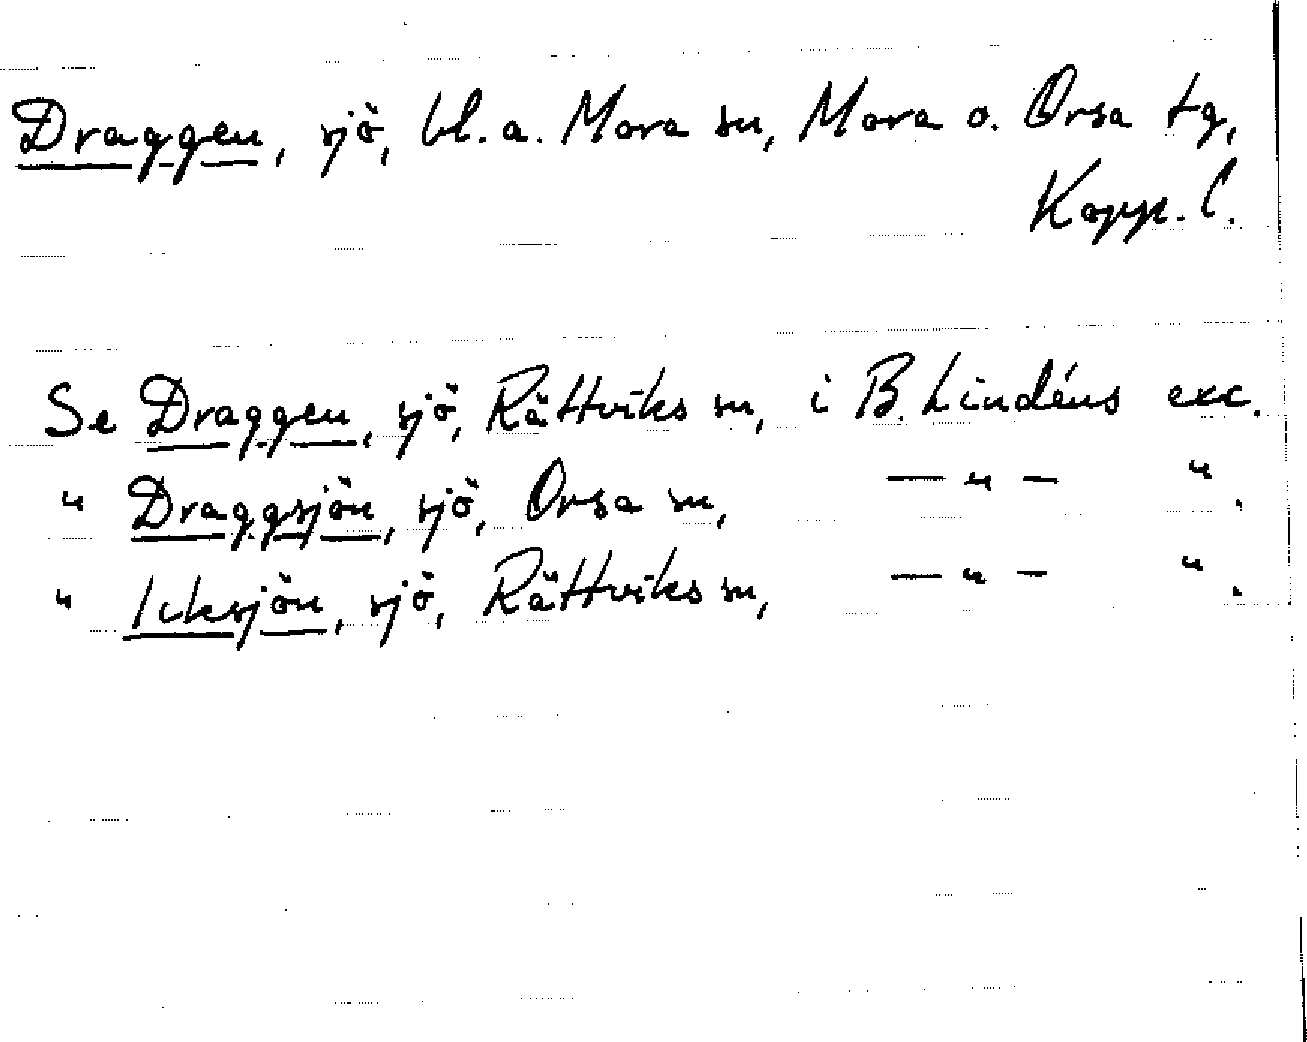 Draggen, sjö, bl.a. Mora sn, Mora o. Orsa tg,
Kopp. l.
Se Draggen, sjö, Rättviks sn, i B. Lindéns exc.
" Draggsjön, sjö, Orsa sn, — " — ".
" Icksjön, sjö, Rättviks sn, — " — ".